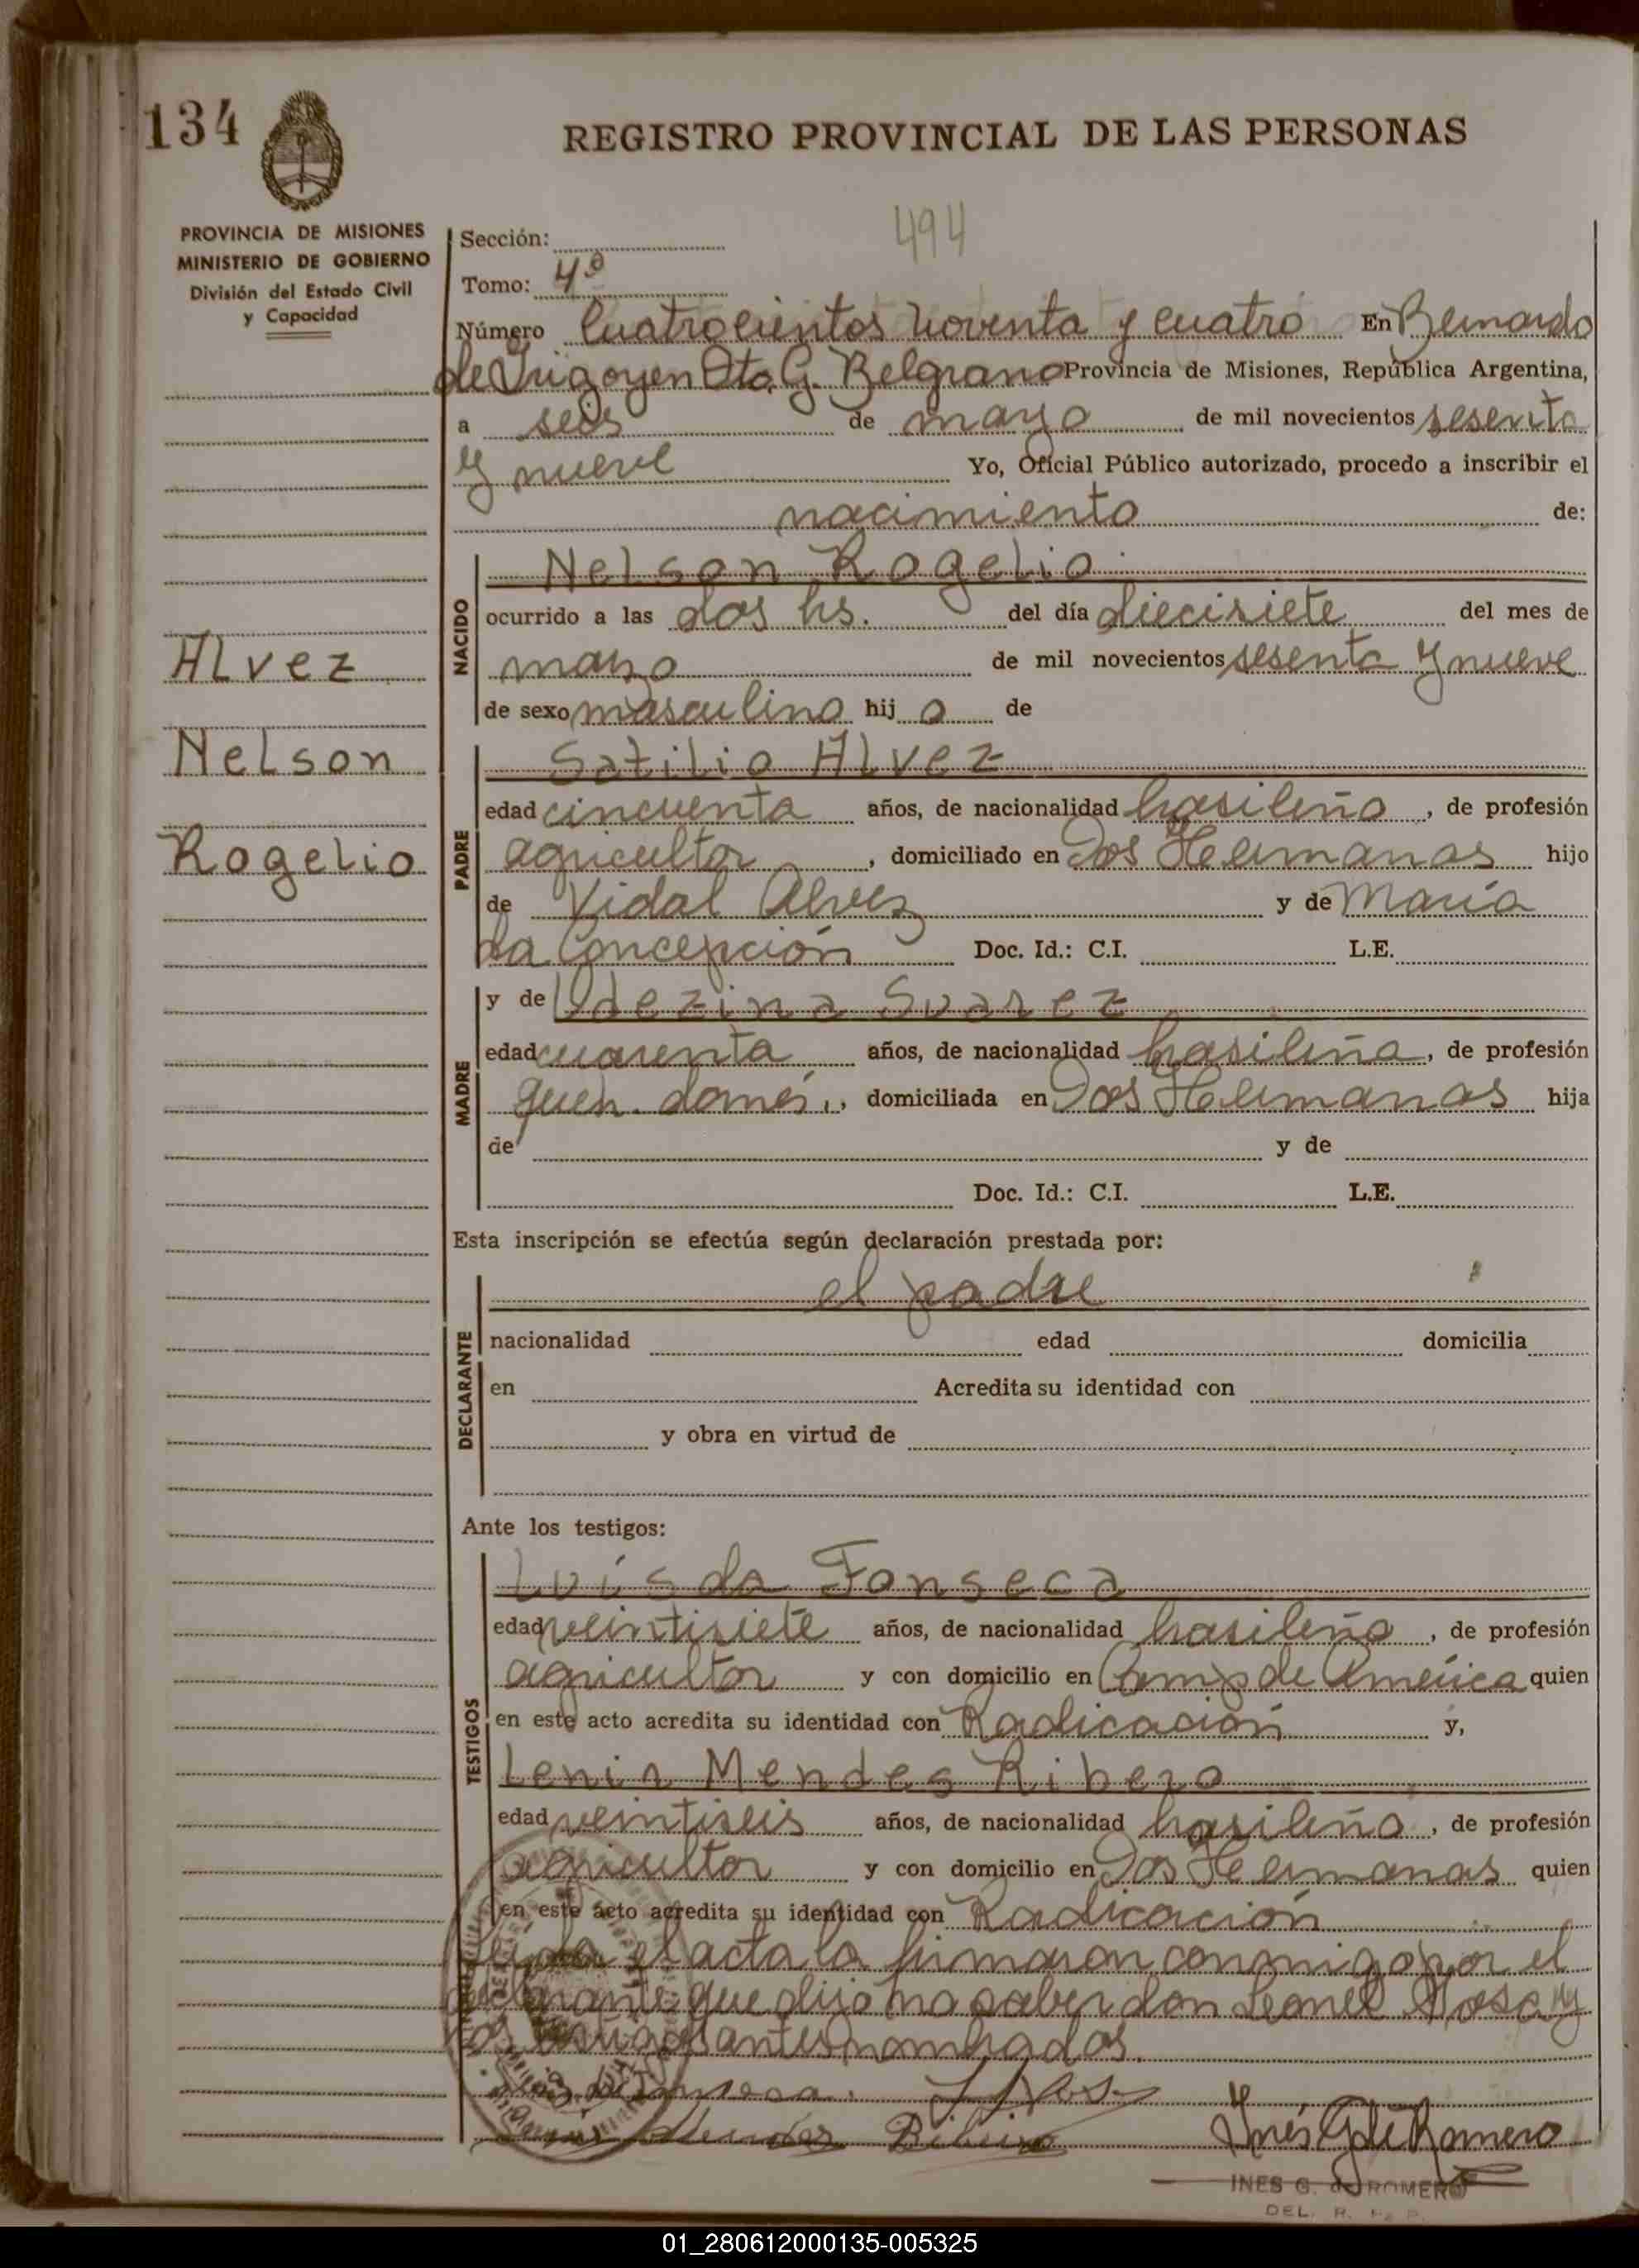 134
REGISTRO PROVINCIAL DE LAS PERSONAS
PROVINCIA DE MISIONES
MINISTERIO DE GOBIERNO
División del Estado Civil
y Capacidad
494
Sección:
Tomo: 4º
Número Cuatrocientos noventa y cuatro En Bernardo
de Irigoyen Dto. G. Belgrano Provincia de Misiones, República Argentina,
a seis de mayo de mil novecientos sesenta
y nueve Yo, Oficial Público autorizado, procedo a inscribir el
nacimiento de:
Alvez
Nelson
Rogelio
NACIDO
Nelson Rogelio
ocurrido a las dos hs. del día diecisiete del mes de
marzo de mil novecientos sesenta y nueve
de sexo masculino hij o de
PADRE
Satilio Alvez
edad cincuenta años, de nacionalidad brasileño, de profesión
agricultor, domiciliado en Dos Hermanas hijo
de Vidal Alvez y de María
da Concepción Doc. Id.: C.I. L.E.
MADRE
y de Idezina Suarez
edad cuarenta años, de nacionalidad brasileña, de profesión
queh. domés., domiciliada en Dos Hermanas hija
de y de
Doc. Id.: C.I. L.E.
Esta inscripción se efectúa según declaración prestada por:
DECLARANTE
el padre
nacionalidad edad domicilia
en Acredita su identidad con
y obra en virtud de
Ante los testigos:
TESTIGOS
Luis da Fonseca
edad veintisiete años, de nacionalidad brasileño, de profesión
agricultor y con domicilio en Comp. de América quien
en este acto acredita su identidad con Radicación y,
Lenir Mendes Ribero
edad veintiseis años, de nacionalidad brasileño, de profesión
agricultor y con domicilio en Dos Hermanas quien
en este acto acredita su identidad con Radicación
Leída el acta la firmaron conmigo por el
declarante que dijo no saber don Leonel Rosa y
los testigos antes nombrados.
Luis da Fonseca
Mendes Ribeiro
Inés G de Romero
INES G. de ROMERO
DEL. R. P. P.
01_280612000135-005325